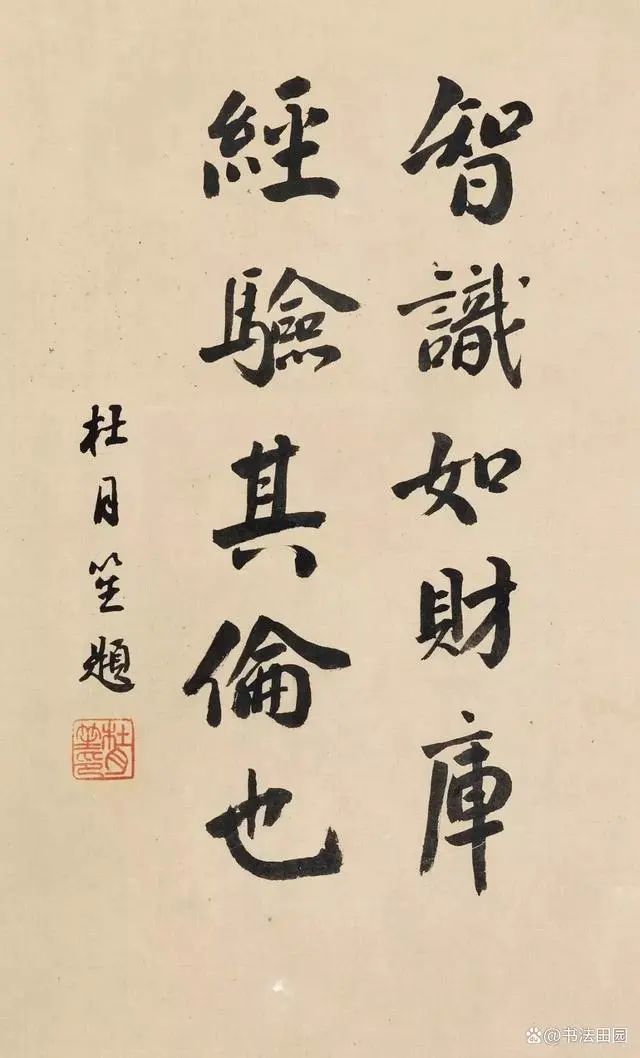 智識如財庫
經驗其倫也
杜月笙題
杜月笙印
@书法田园